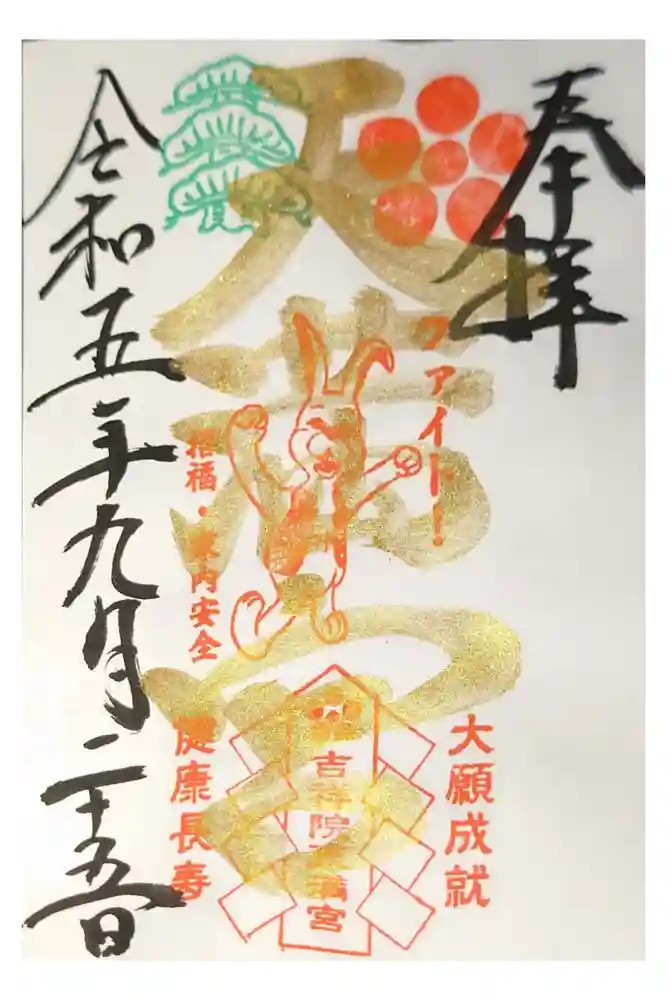 奉拝
ファイト!
天満宮
大願成就
吉祥院天満宮
招福・家内安全
健康長寿
令和五年九月二十五日